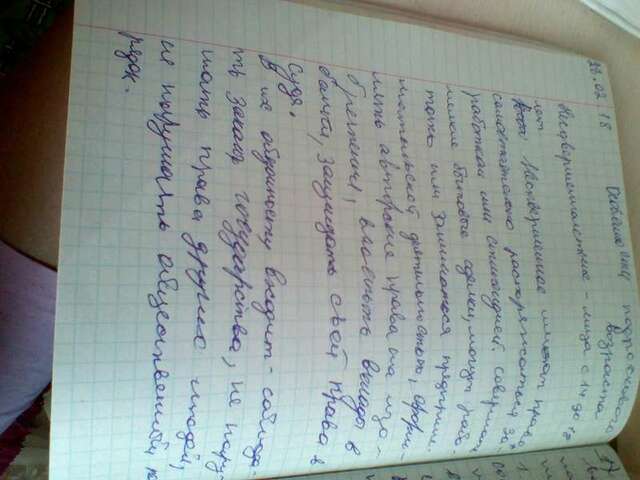 22.02.18
Особенности подросткового
возраста
Несовершеннолетние - лица с 14 до 18
лет
Несовершенные имеют право
самостоятельно распоряжаться за-
работком или стипендией совершать
мелкие бытовые сделки, могут рабо-
тать или заниматься предприни-
мательской деятельностью, оформ-
лять авторские права на изо-
бретения, вносить вклады в
банки, защищать свои права в
суде.
В их обязанности входит - соблюда-
ть законы государства, не нару-
шать права других людей,
не нарушать общественный по-
рядок.